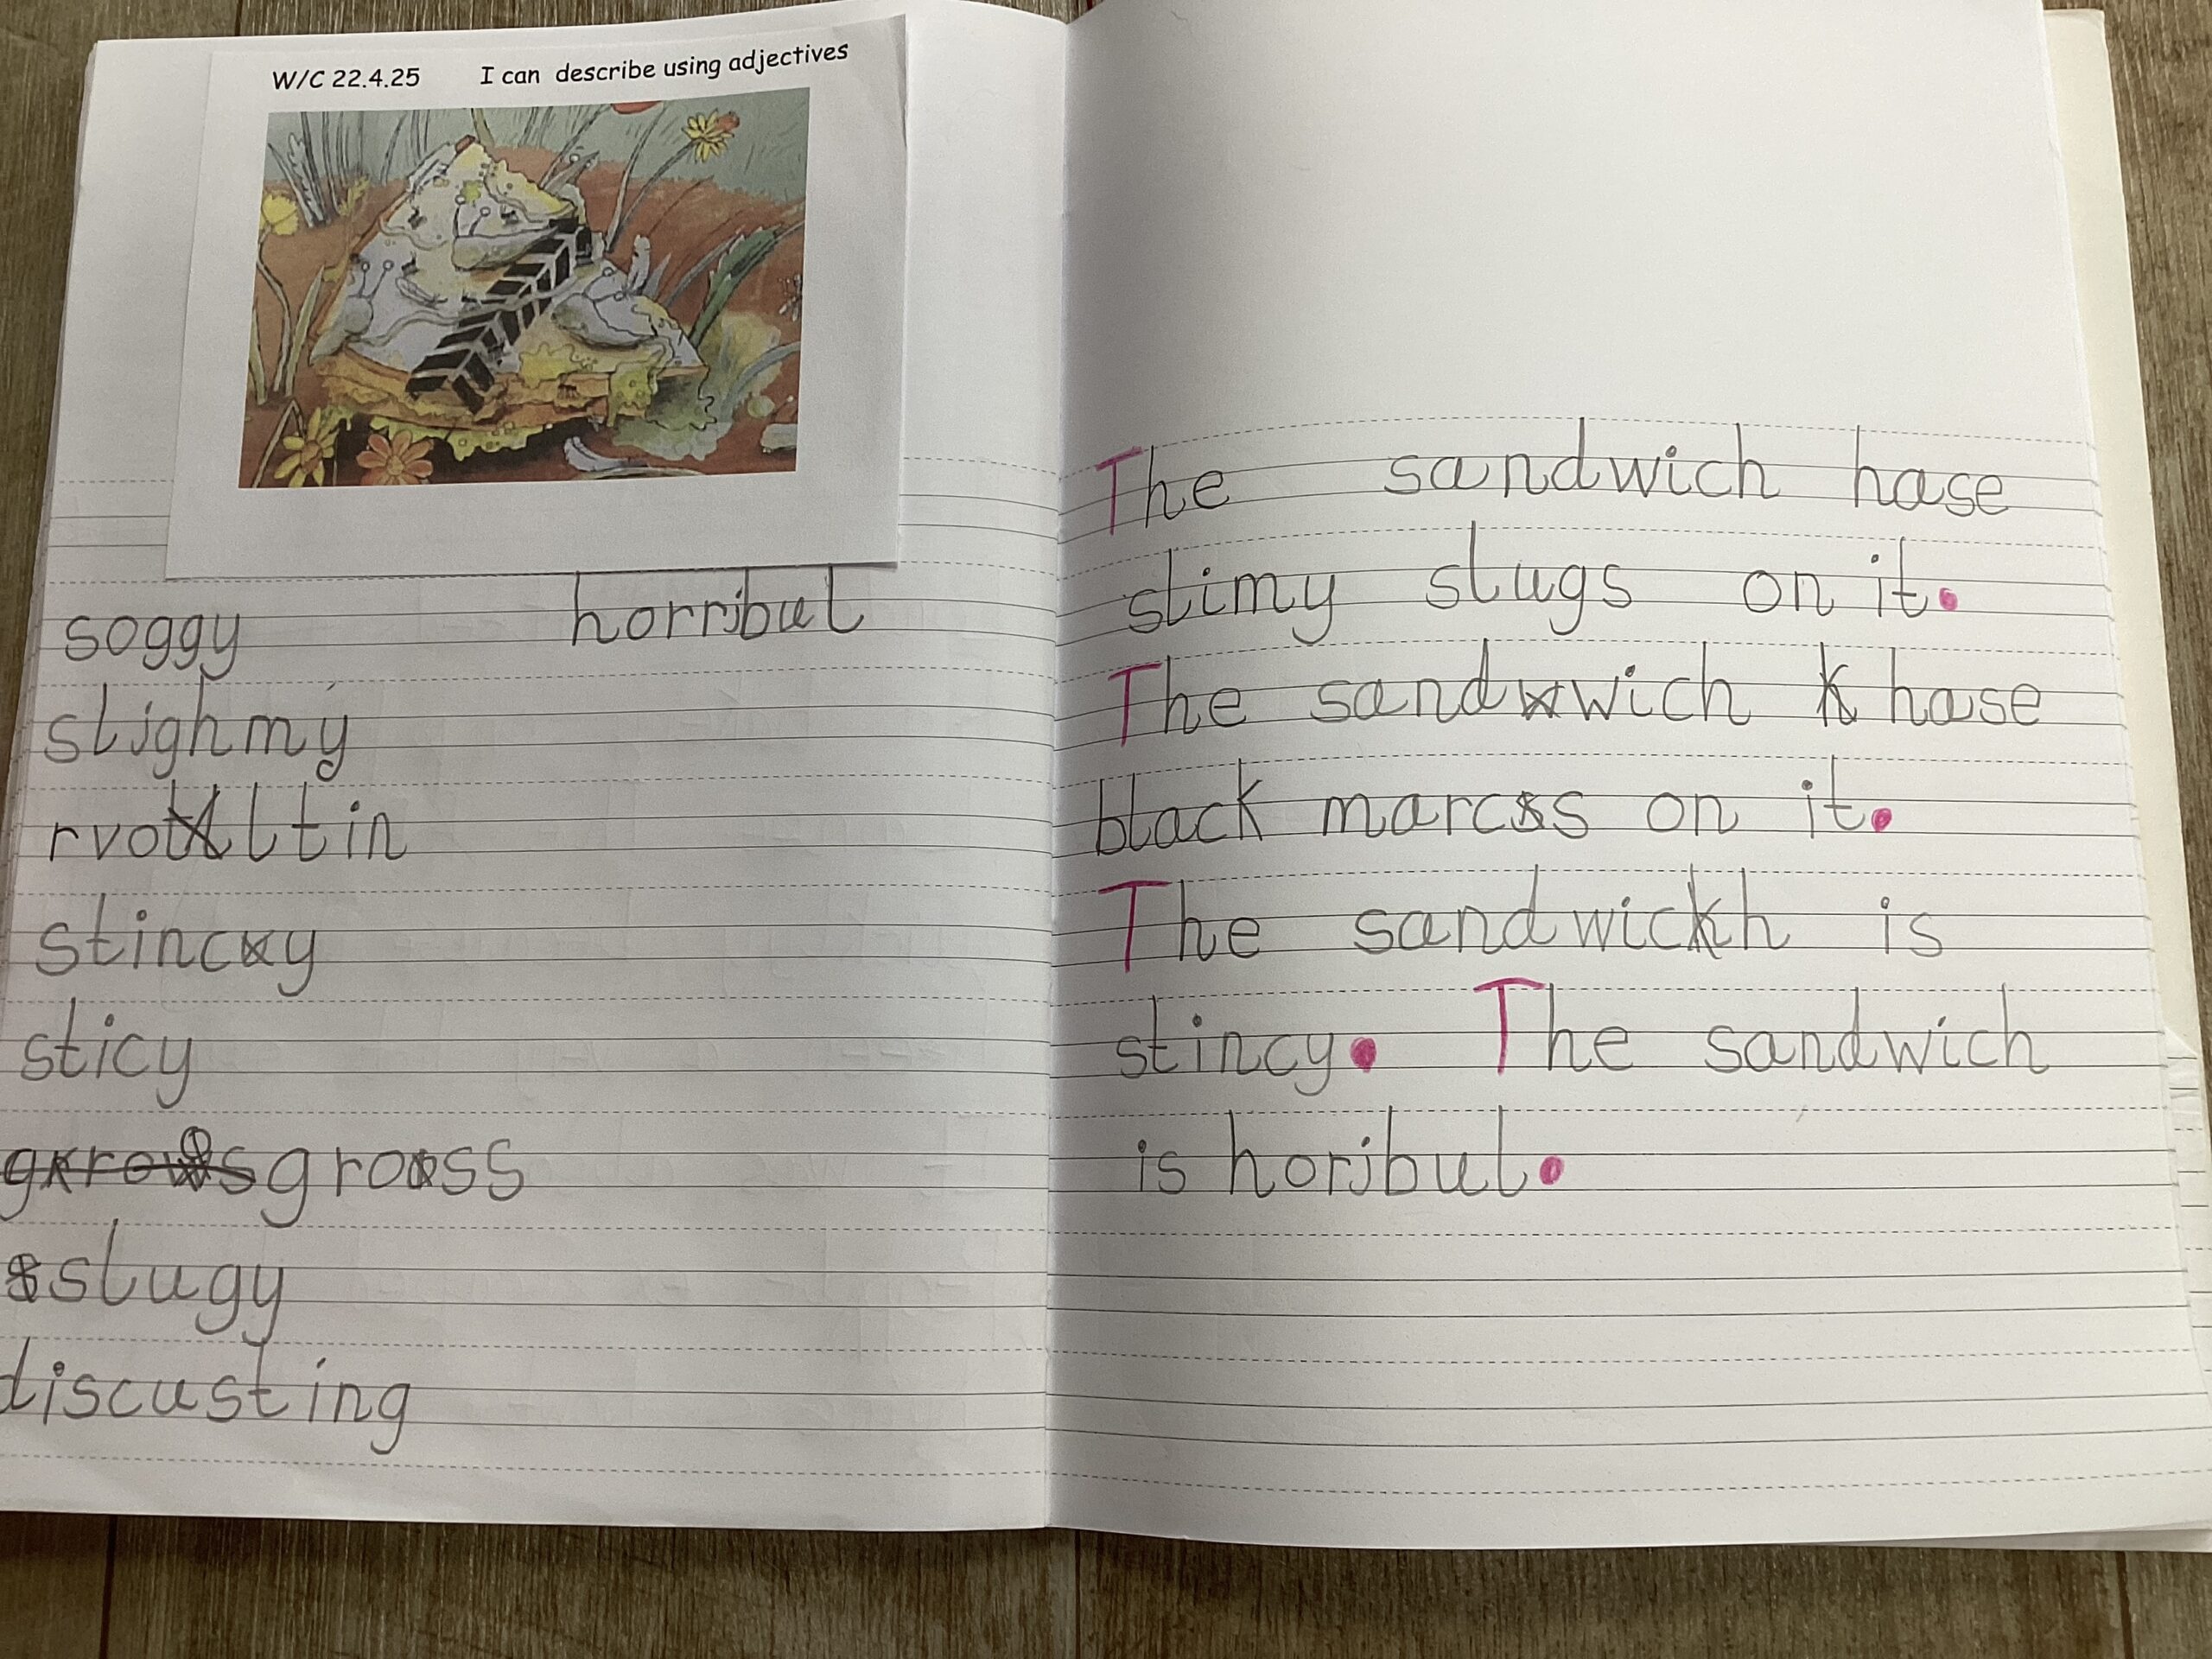 W/C 22.4.25 I can describe using adjectives
soggy horribul
slighmy
rvoltin
stincy
sticy
gross
slugy
discusting
The sandwich hase
slimy slugs on it.
The sandwich hase
black marcs on it.
The sandwich is
stincy. The sandwich
is horibul.